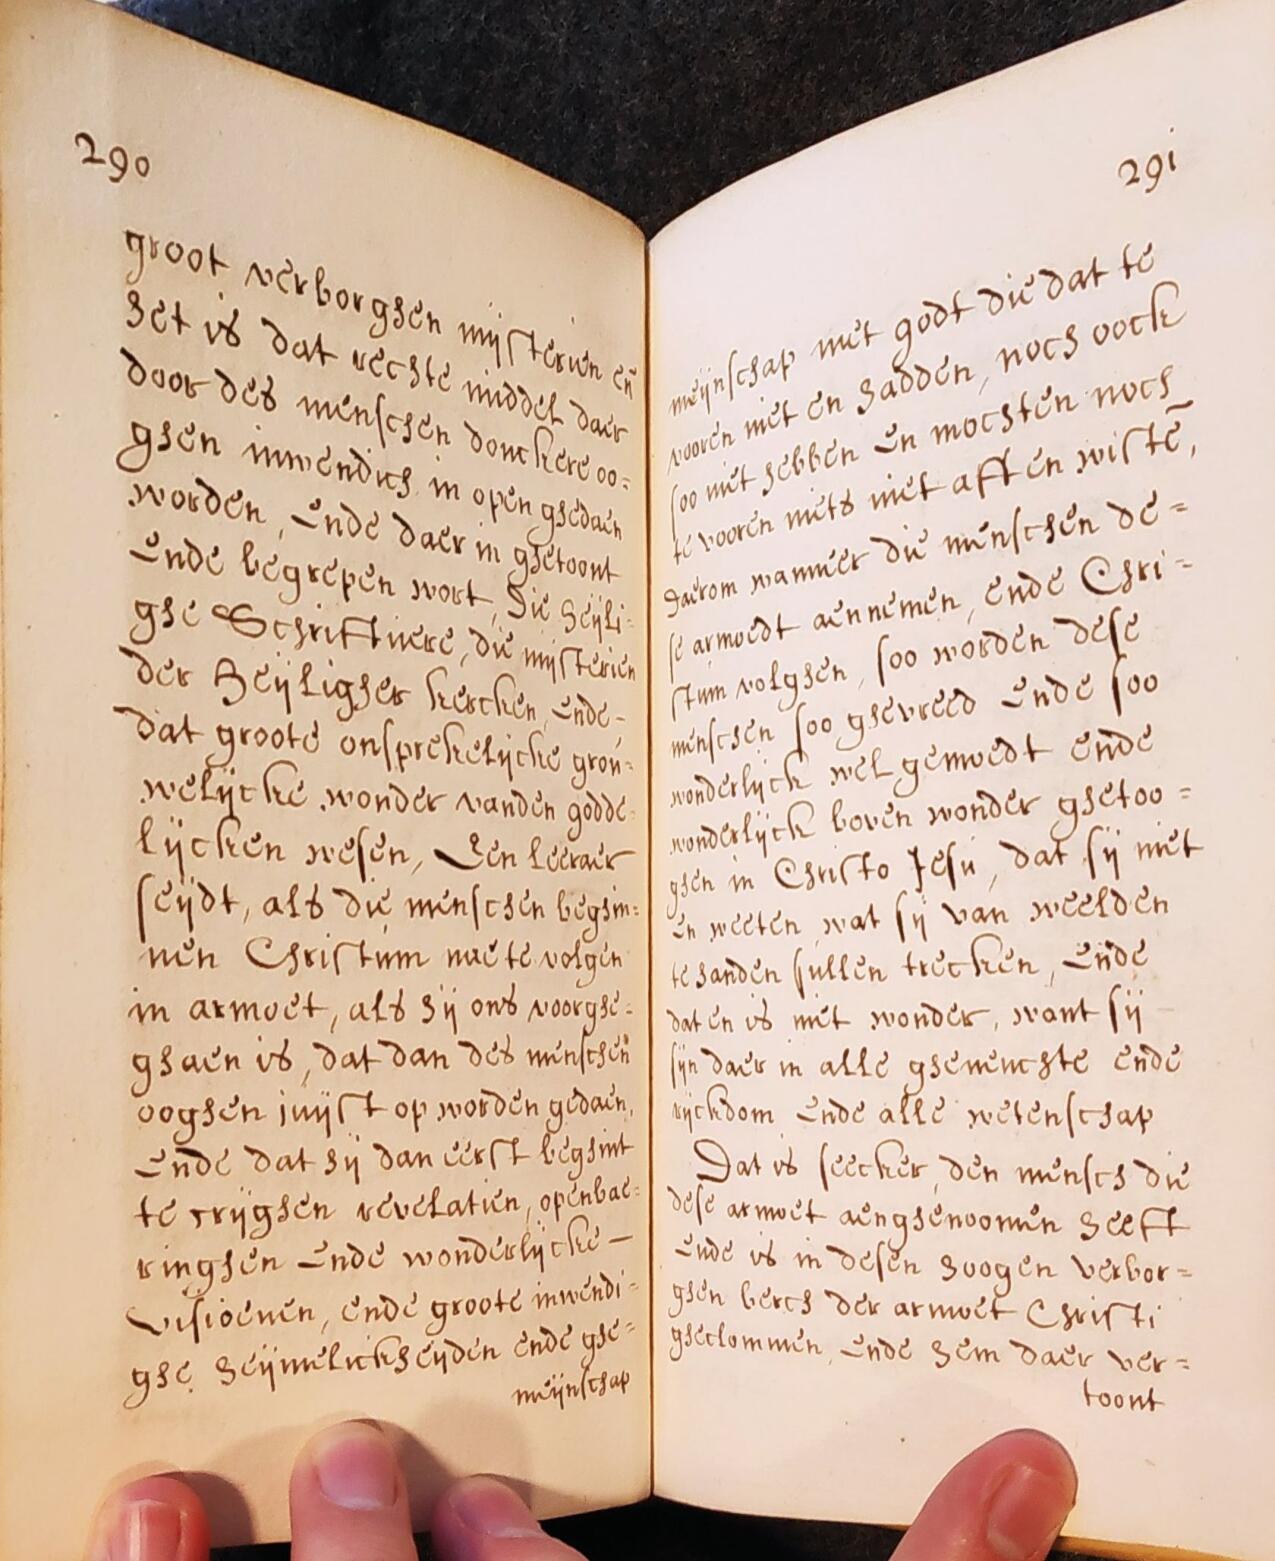 290
groot verborghen mijsterien eñ
het is dat rechte middel daer
door des menschen donckere oo=
ghen inwendich in open ghedaen
worden, Ende daer in ghetoont
Ende begrepen wort, Die heijli=
ghe Schriftuere, die mijsterien
der heijligher kercken, Ende,
dat groote onsprekelijcke gron=
welijcke wonder vanden godde=
lijcken wesen, Een leeraer
seijdt, als die menschen beghin=
nen Christum nae te volgen
in armoet, als hij ons voorghe=
ghaen is, dat dan des menschen
ooghen juijst op worden gedaen,
Ende dat hij dan eerst beghint
te crijghen revelatien, openbae=
ringhen Ende wonderlijcke –
Visioenen, ende groote inwendi=
ghe heijmelickheijden ende ghe=
meijnschap
291
meijnschap met godt die dat te
vooren niet en hadden, noch oock
soo niet hebben En mochten noch
te vooren niets niet aff en wistē,
Daerom wanneer die menschen de=
se armoedt aennemen, ende Chri=
stum volghen, soo worden dese
menschen soo ghevreed Ende soo
wonderlijck wel gemoedt ende
wonderlijck boven wonder ghetoo=
ghen in Christo Jesu, dat sij niet
En weeten wat sij van weelden
te handen sullen trecken, Ende
dat en is niet wonder, want sij
sijn daer in alle ghenuchte ende
rijckdom Ende alle wetenschap
Dat is seecker, den mensch die
dese armoet aenghenoomen heeft
Ende is in desen hoogen verbor=
ghen berch der armoet Christi
gheclommen, Ende hem daer ver=
toont